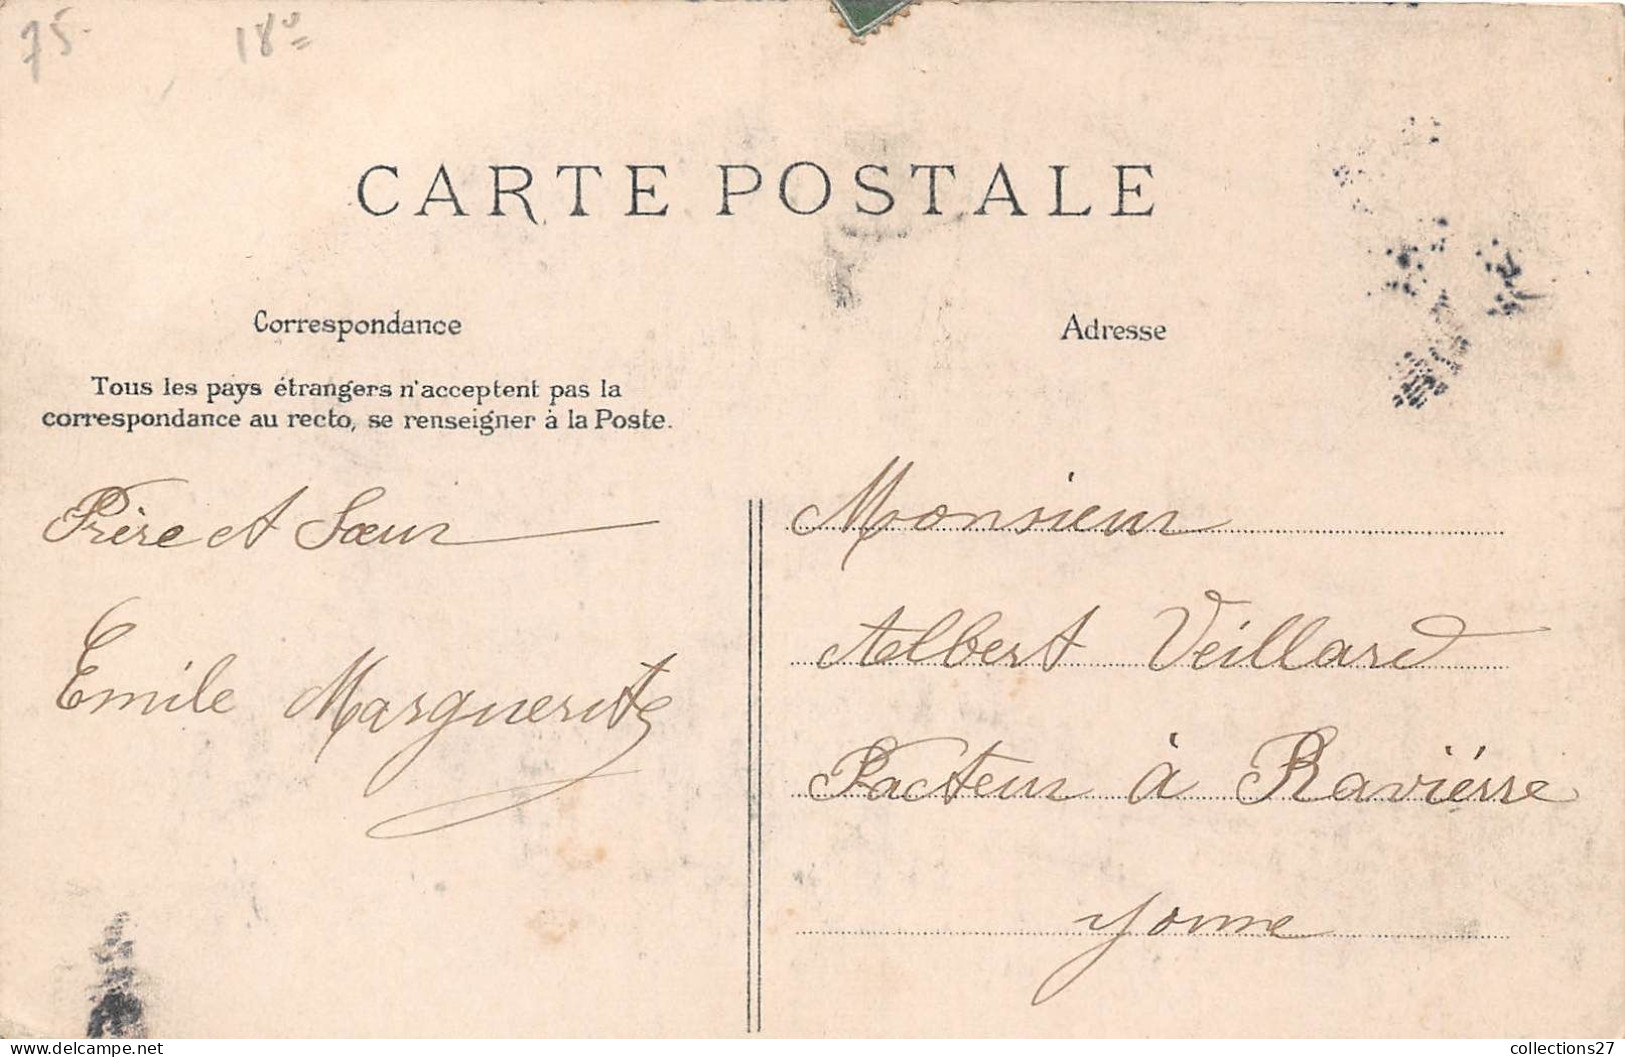 75
18e
CARTE POSTALE
Correspondance
Tous les pays étrangers n'acceptent pas la
correspondance au recto, se renseigner à la Poste.
Frère et Sœur
Emile Marguerite
Adresse
Monsieur
Albert Veillard
Facteur à Raviérre
Yonne
collections27